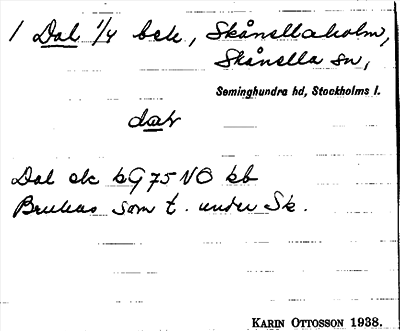 1 Dal 1/4 bek, Skånellaholm,
Skånella sn,
Seminghundra hd, Stockholms l.
dɑ̄v
Dal ek bG75NO kb
Brukas som t. under Sk.
KARIN OTTOSSON 1938.